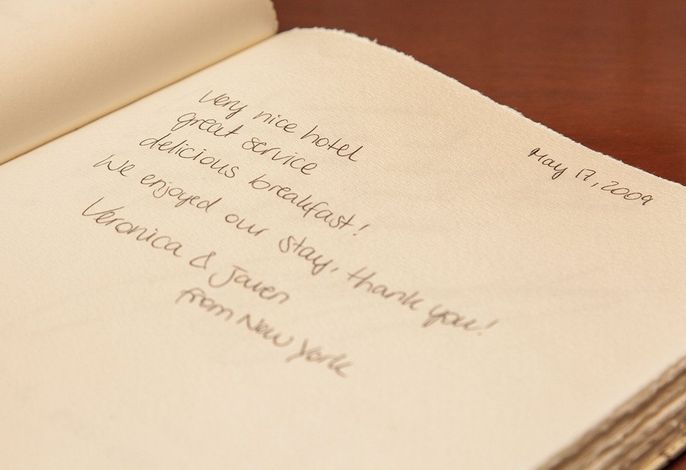 May 17, 2009
Very nice hotel
great service
delicious breakfast!
We enjoyed our stay, thank you!
Veronica & Javen
from New York